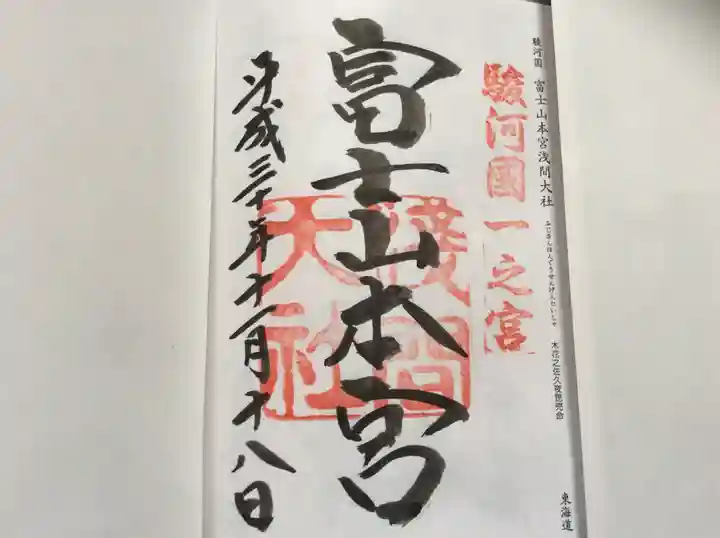 駿河国 富士山本宮浅間大社 ふじさんほんぐうせんげんたいしゃ 木花之佐久夜毘売命 東海道
駿河國一之宮
富士山本宮
淺間大社
平成三十年十一月十八日